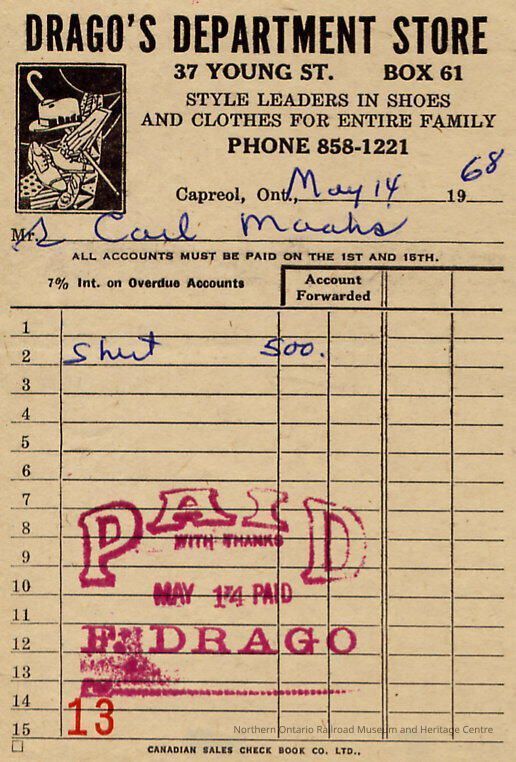 DRAGO'S DEPARTMENT STORE
37 YOUNG ST. BOX 61
STYLE LEADERS IN SHOES
AND CLOTHES FOR ENTIRE FAMILY
PHONE 858-1221
Capreol, Ont., May 14 1968
Mr. Carl
ALL ACCOUNTS MUST BE PAID ON THE 1ST AND 15TH.
7% Int. on Overdue Accounts Account Forwarded
1
2 Shirt 500.
3
4
5
6
7 PAID
8 WITH THANKS
9
10 MAY 14 PAID
11
12 DRAGO
13
14
15 13
Northern Ontario Railroad Museum and Heritage Centre
CANADIAN SALES CHECK BOOK CO. LTD.,